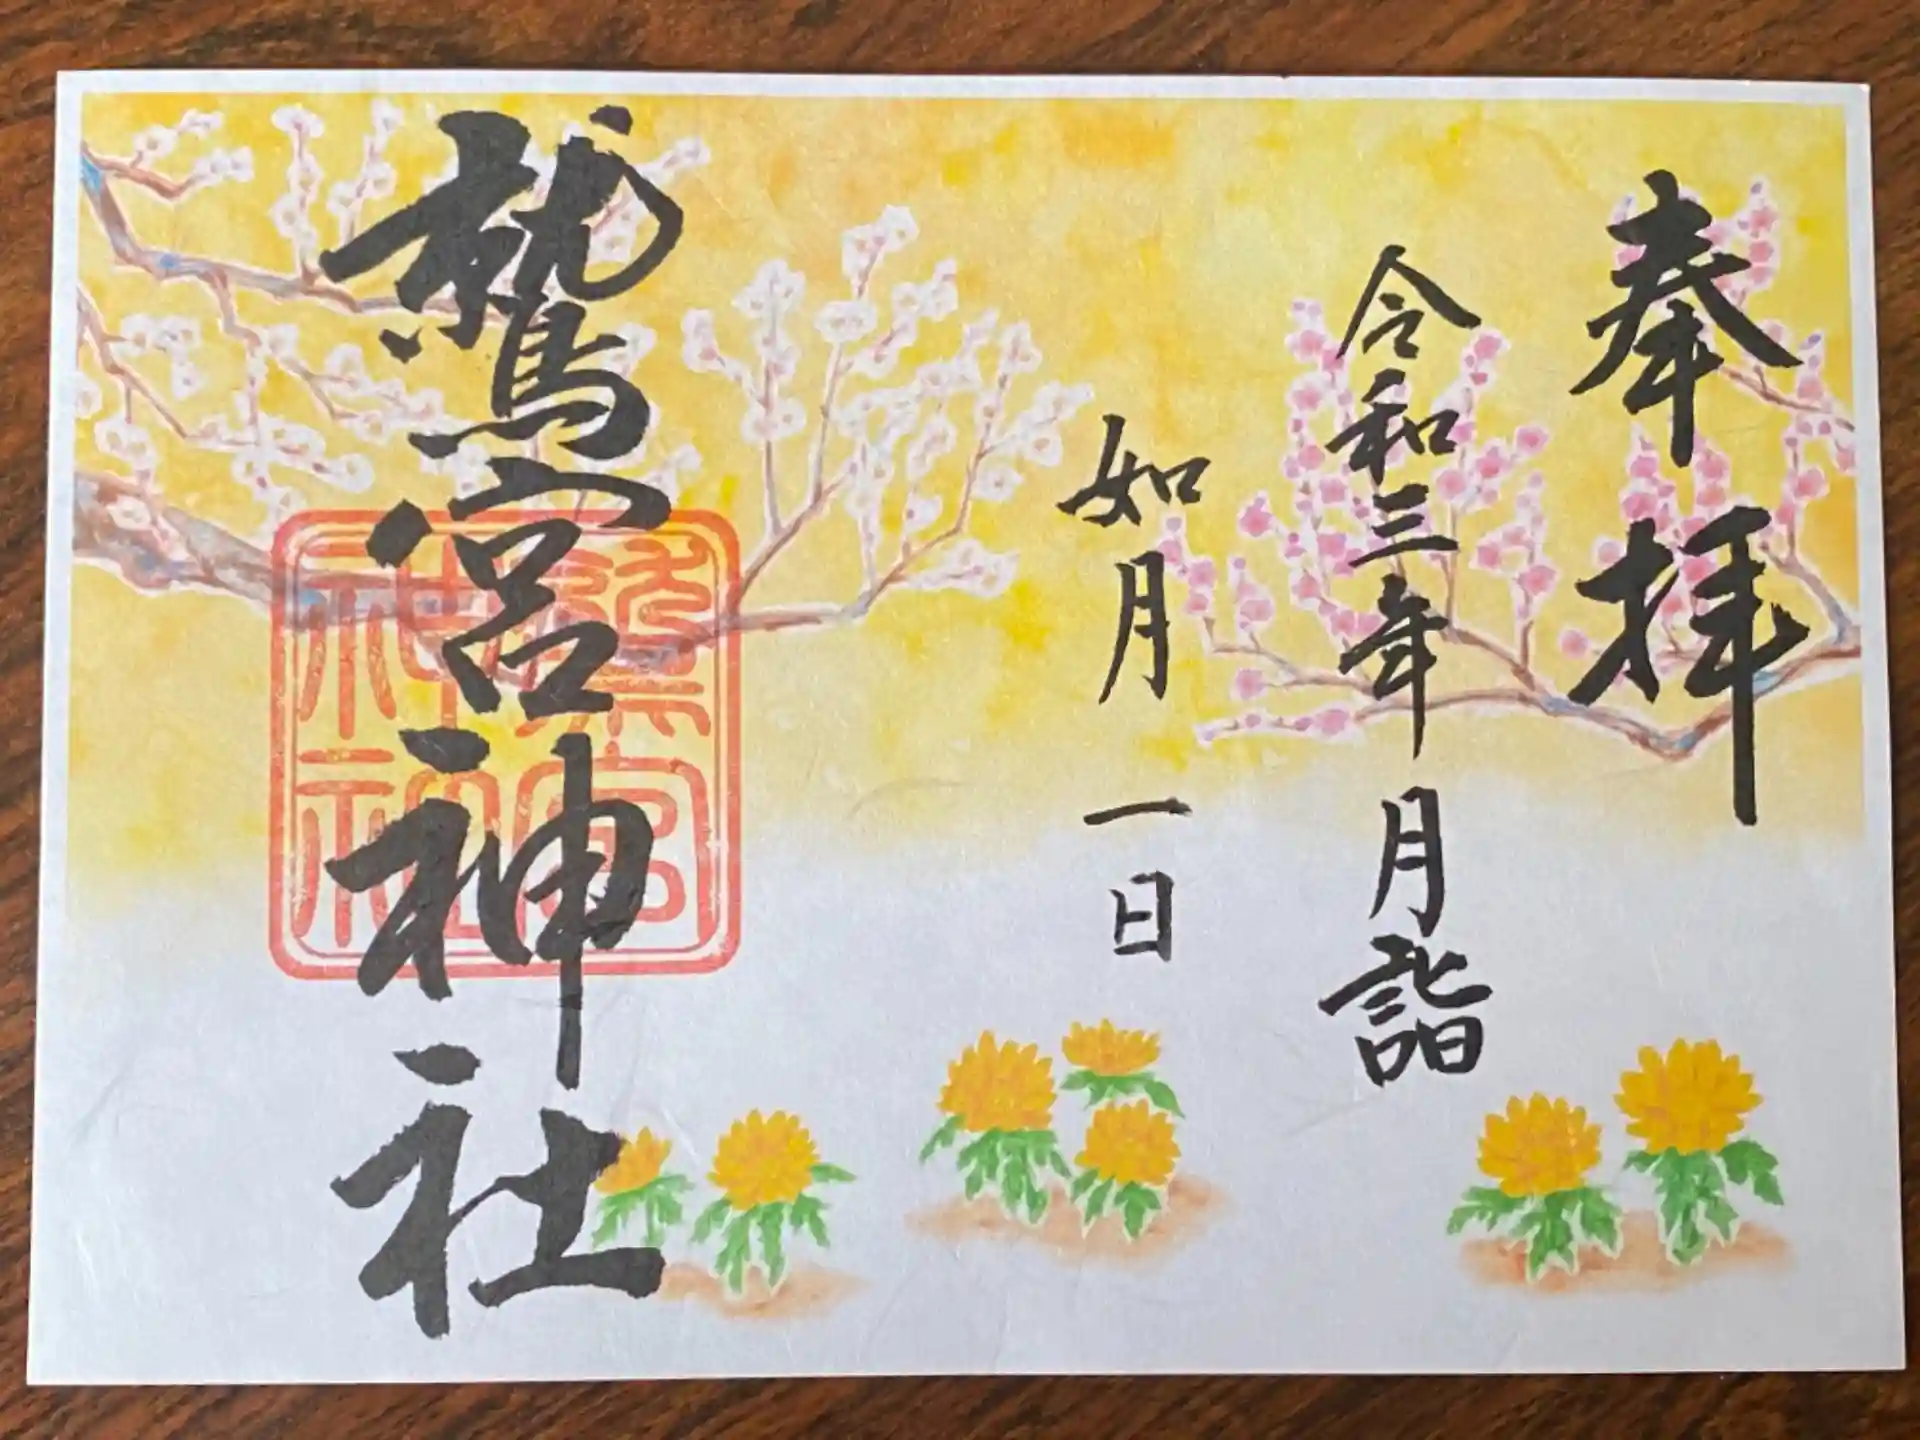 奉拝
令和三年月詣
如月一日
鷲宮神社
鷲宮神社